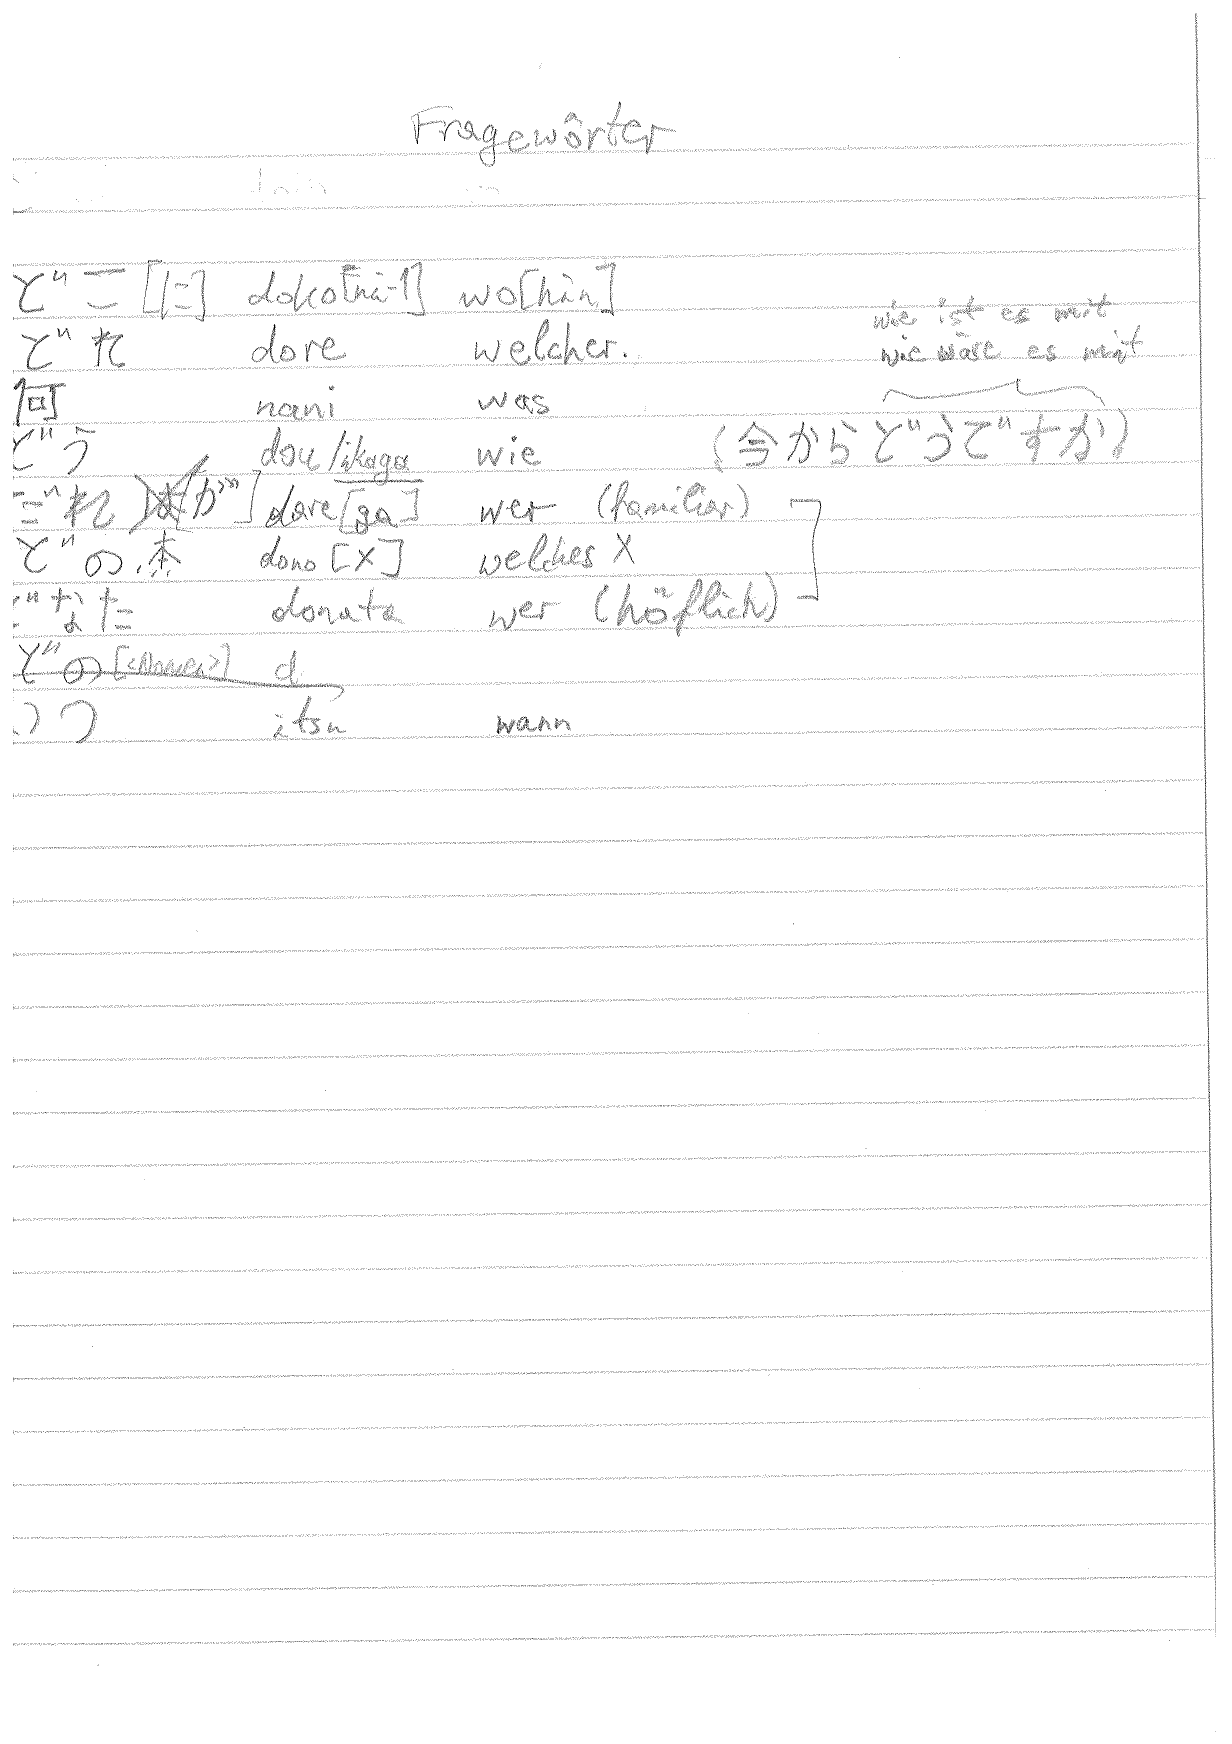 Fragewörter
どこ [に] doko[ni] wo[hin]
wie ist es mit
どれ dore welcher.
wie wäre es mit
何 nani was
どう dou/ikaga wie (今からどうですか)
だれ [が] dare [ga] wer (familiar)
どの本 dono [X] welches X
どなた donata wer (höflich)
どの [<Nomen>] d
いつ itsu wann